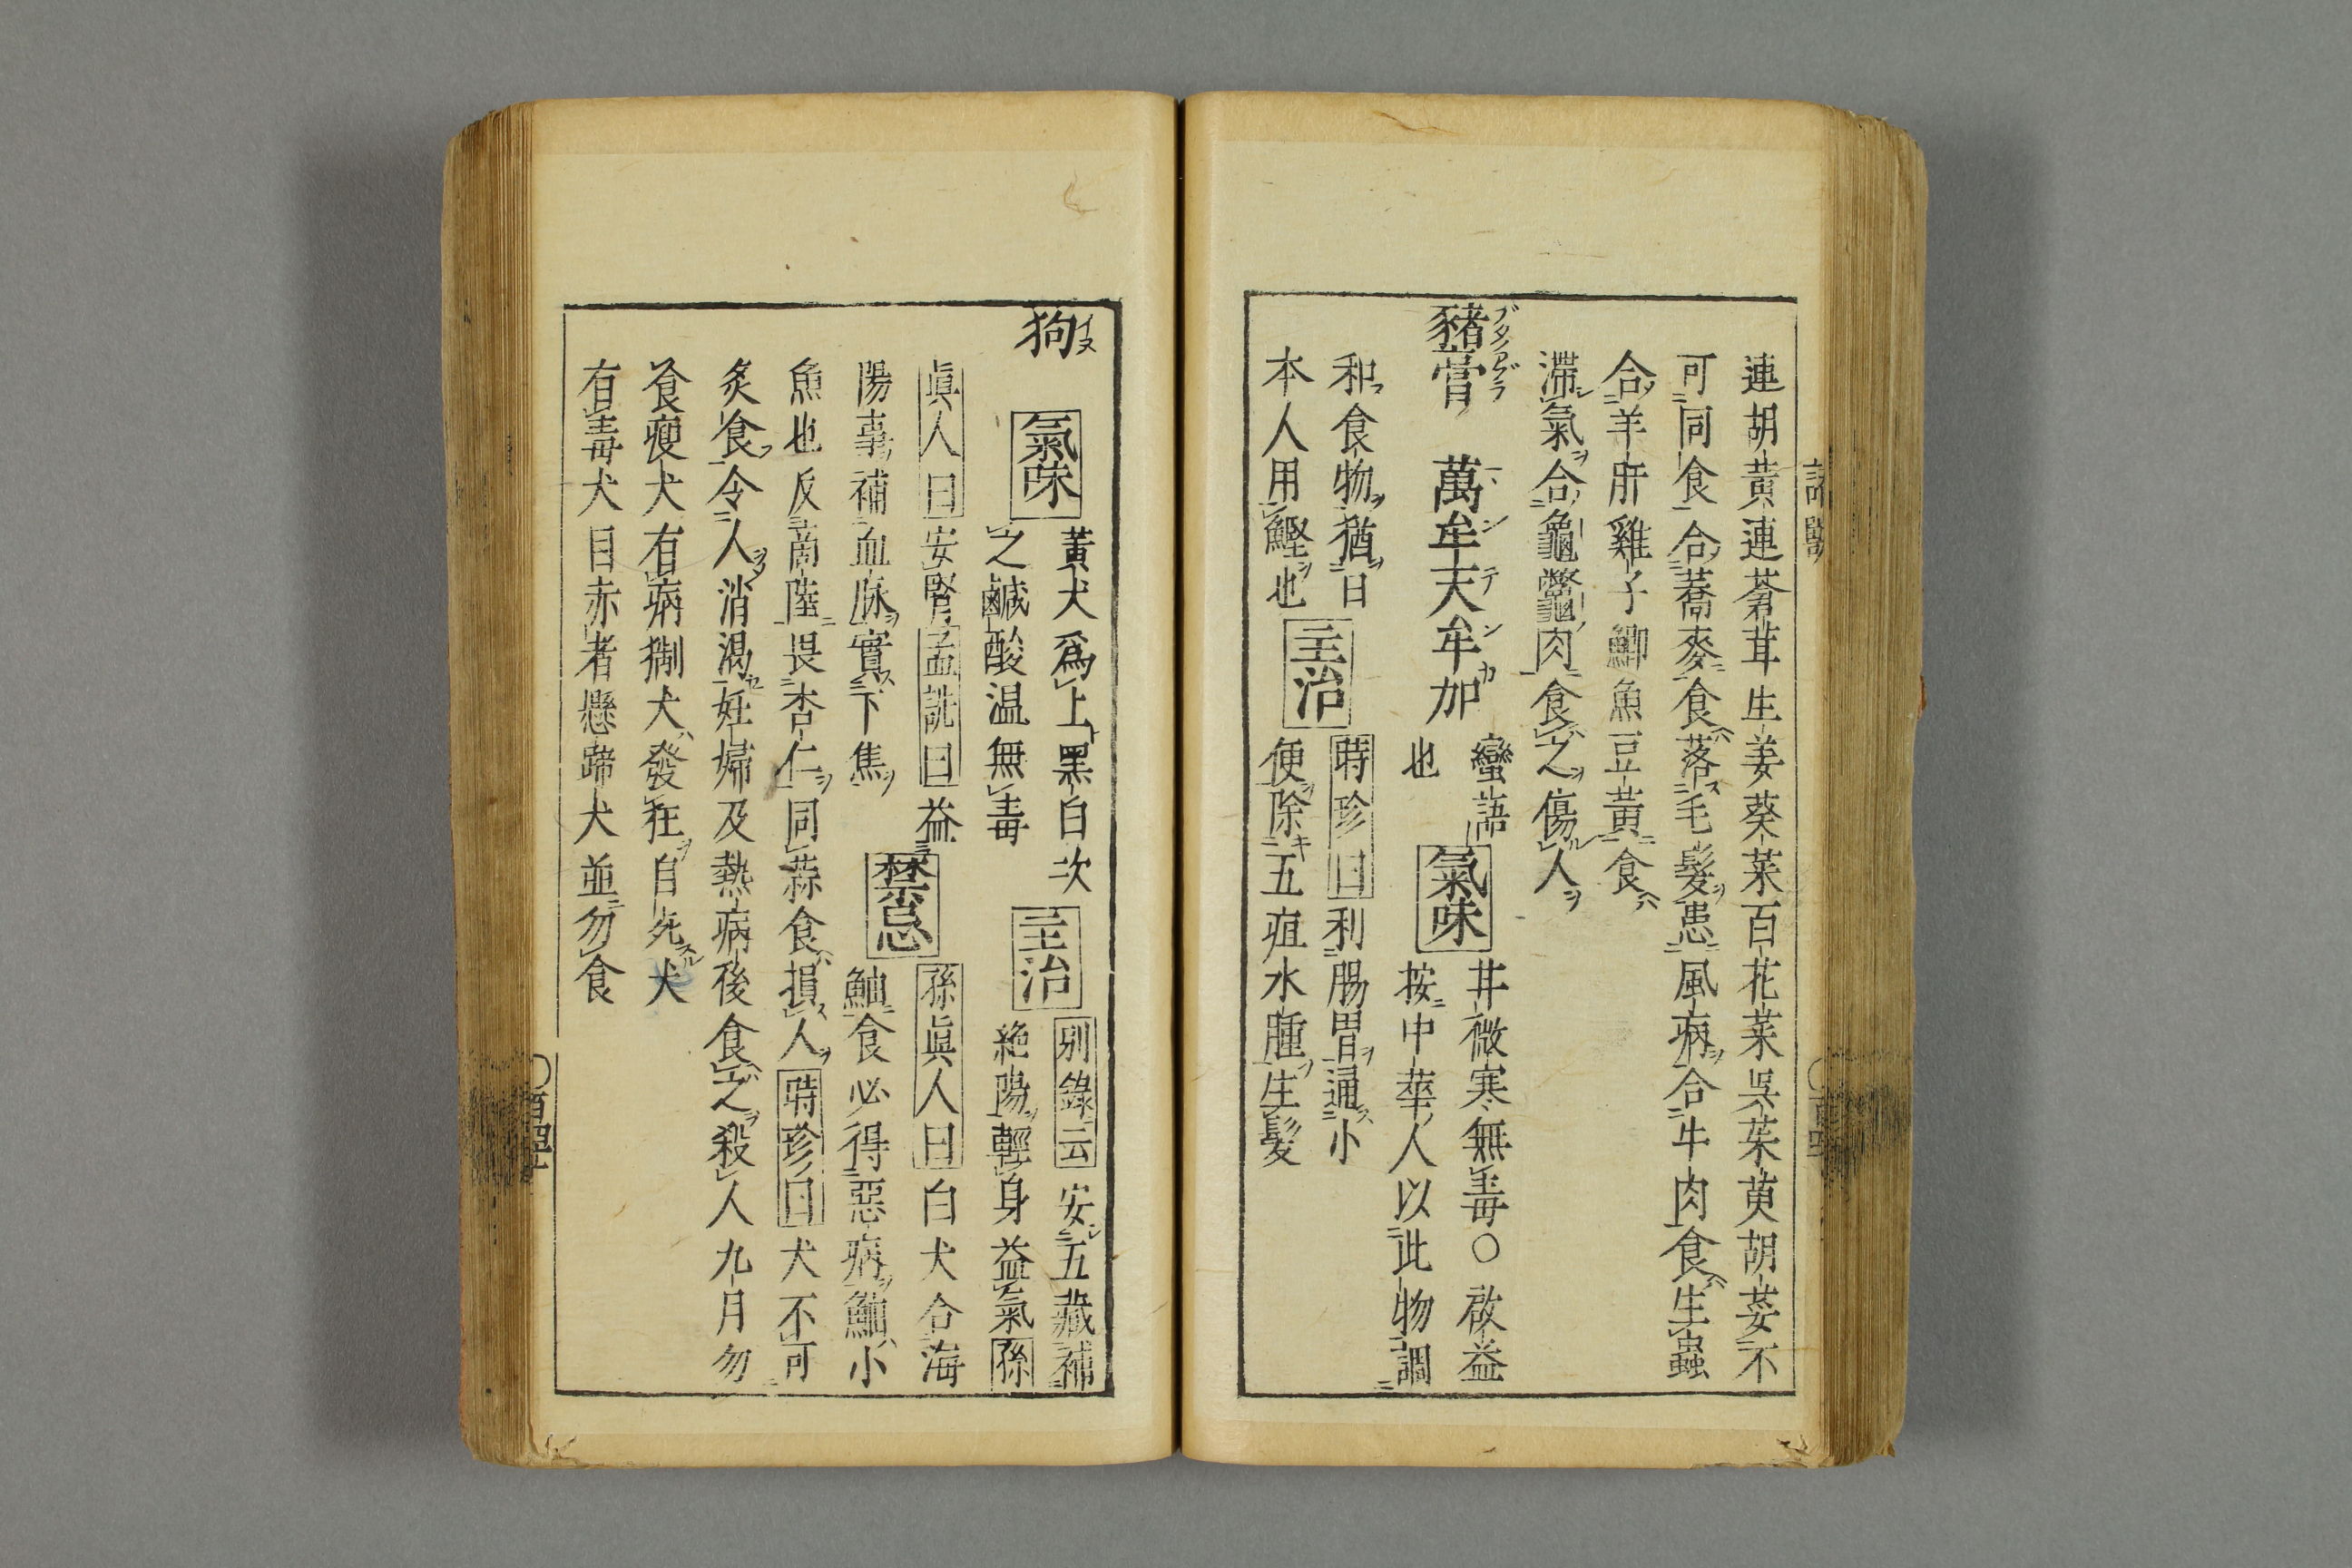 連胡黃連蒼茸生姜葵菜百花菜呉茱萸胡荽不
可同食合蕎麥食落毛髮患風病合牛肉食生蟲
合羊肝雞子鯽魚豆黃食
滯氣合龜鼈肉食之傷人
ブタノアブラ
豬膏 萬牟天牟加 蠻語也 氣味 甘微寒無毒〇啟益
按中華人以此物調
和食物猶日
本人用鰹也 主治 時珍曰利腸胃通小
便除五疸水腫生髮
イヌ
狗 氣味 黃犬爲上黑白次
之鹹酸温無毒 主治 別錄云安五藏補
絶陽輕身益氣孫
眞人曰安腎孟詵曰益
陽事補血脉實下焦 禁忌 孫眞人曰白犬合海
鮋食必得惡病鮋小
魚也反商陸畏杏仁同蒜食損人時珍曰犬不可
炙食令人消渴妊婦及熱病後食之殺人九月勿
食瘦犬有病猘犬發狂自死犬
有毒犬目赤者懸蹄犬並勿食